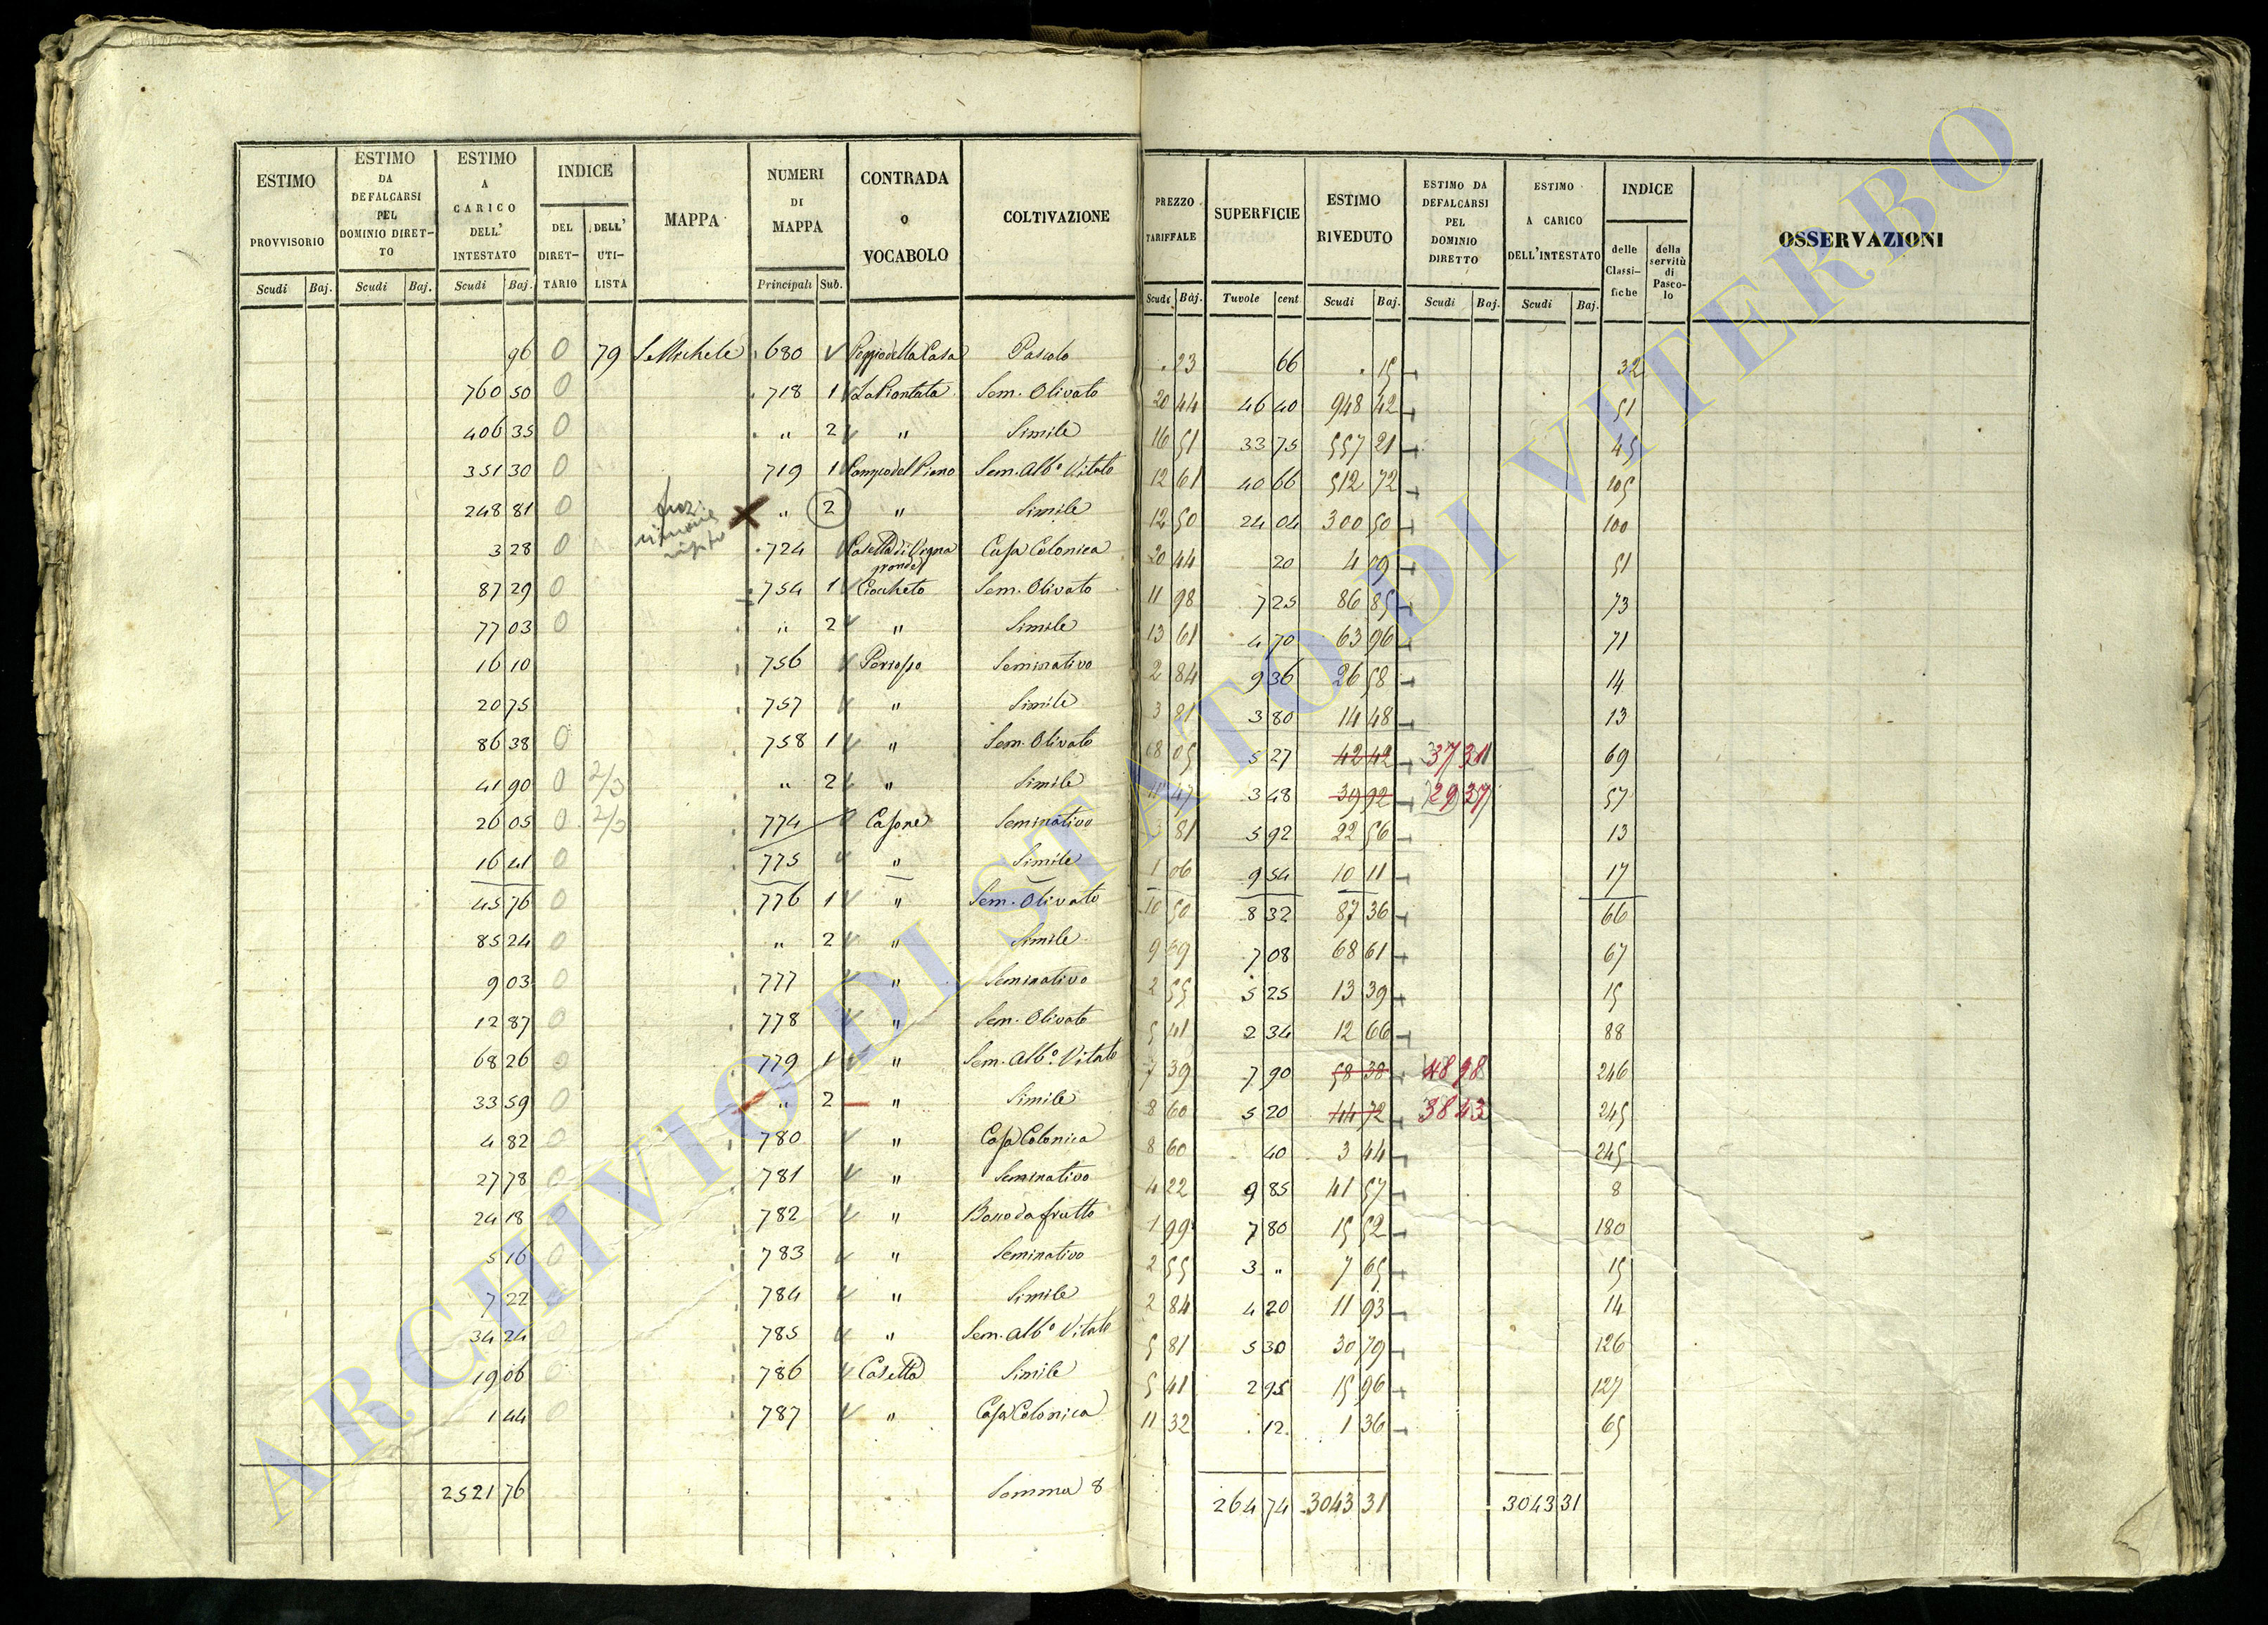 ESTIMO PROVVISORIO | ESTIMO DA DEFALCARSI PEL DOMINIO DIRETTO | ESTIMO A CARICO DELL' INTESTATO | INDICE | MAPPA | NUMERI DI MAPPA | CONTRADA O VOCABOLO | COLTIVAZIONE | PREZZO TARIFFALE | SUPERFICIE | ESTIMO RIVEDUTO | ESTIMO DA DEFALCARSI PEL DOMINIO DIRETTO | ESTIMO A CARICO DELL'INTESTATO | INDICE | OSSERVAZIONI
DEL DIRETTARIO | DELL' UTILISTA | delle Classifiche | della servitù di Pascolo
Scudi | Baj. | Scudi | Baj. | Scudi | Baj. | Principali | Sub. | Scudi | Baj. | Tavole | cent | Scudi | Baj. | Scudi | Baj. | Scudi | Baj.
96 | 0 | 79 | S. Michele | 680 | Poggio della Casa | Pascolo | . 23 | 66 | . 15 | 32
760 50 | 0 | 718 | 1 | La Piantata | Sem. Olivato | 20 44 | 46 40 | 948 42 | 51
406 35 | 0 | " | 2 | " | Simile | 16 51 | 33 75 | 557 21 | 45
351 30 | 0 | 719 | 1 | Campo del Piano | Sem. Alb.º Vitato | 12 61 | 40 66 | 512 72 | 105
248 81 | 0 | " | 2 | " | Simile | 12 50 | 24 04 | 300 50 | 100
3 28 | 0 | 724 | Casetta di Vigna grande | Casa Colonica | 20 44 | 20 | 4 09 | 51
87 29 | 0 | 754 | 1 | Ciocheto | Sem. Olivato | 11 98 | 7 25 | 86 85 | 73
77 03 | 0 | " | 2 | " | Simile | 13 61 | 4 70 | 63 96 | 71
16 10 | 756 | Seminativo | 2 84 | 9 36 | 26 58 | 14
20 75 | 757 | " | Simile | 3 81 | 3 80 | 14 48 | 13
86 38 | 0 | 758 | 1 | " | Sem. Olivato | 8 05 | 5 27 | 42 42 | 37 31 | 69
41 90 | 0 | 2/3 | " | 2 | " | Simile | 11 47 | 3 48 | 39 92 | 29 37 | 57
26 05 | 0 | 2/3 | 774 | Casone | Seminativo | 3 81 | 5 92 | 22 56 | 13
16 41 | 0 | 775 | " | Simile | 1 06 | 9 54 | 10 11 | 17
45 76 | 0 | 776 | 1 | " | Sem. Olivato | 10 50 | 8 32 | 87 36 | 66
85 24 | 0 | " | 2 | " | Simile | 9 69 | 7 08 | 68 61 | 67
9 03 | 0 | 777 | " | Seminativo | 2 55 | 5 25 | 13 39 | 15
12 87 | 0 | 778 | " | Sem. Olivato | 5 41 | 2 34 | 12 66 | 88
68 26 | 0 | 779 | 1 | " | Sem. Alb.º Vitato | 7 39 | 7 90 | 58 38 | 48 98 | 246
33 59 | 0 | " | 2 | " | Simile | 8 60 | 5 20 | 44 72 | 38 43 | 245
4 82 | 0 | 780 | " | Casa Colonica | 8 60 | 40 | 3 44 | 245
27 78 | 0 | 781 | " | Seminativo | 4 22 | 9 85 | 41 57 | 8
24 18 | 0 | 782 | " | Bosco da frutto | 1 99 | 7 80 | 15 52 | 180
5 16 | 0 | 783 | " | Seminativo | 2 55 | 3 " | 7 65 | 15
7 22 | 0 | 784 | " | Simile | 2 84 | 4 20 | 11 93 | 14
34 24 | 0 | 785 | " | Sem. Alb.º Vitato | 5 81 | 5 30 | 30 79 | 126
19 06 | 0 | 786 | Casetta | Simile | 5 41 | 2 95 | 15 96 | 127
1 44 | 0 | 787 | " | Casa Colonica | 11 32 | . 12 | 1 36 | 65
2521 76 | Somma 8 | 264 74 | 3043 31 | 3043 31
ARCHIVIO DI STATO DI VITERBO